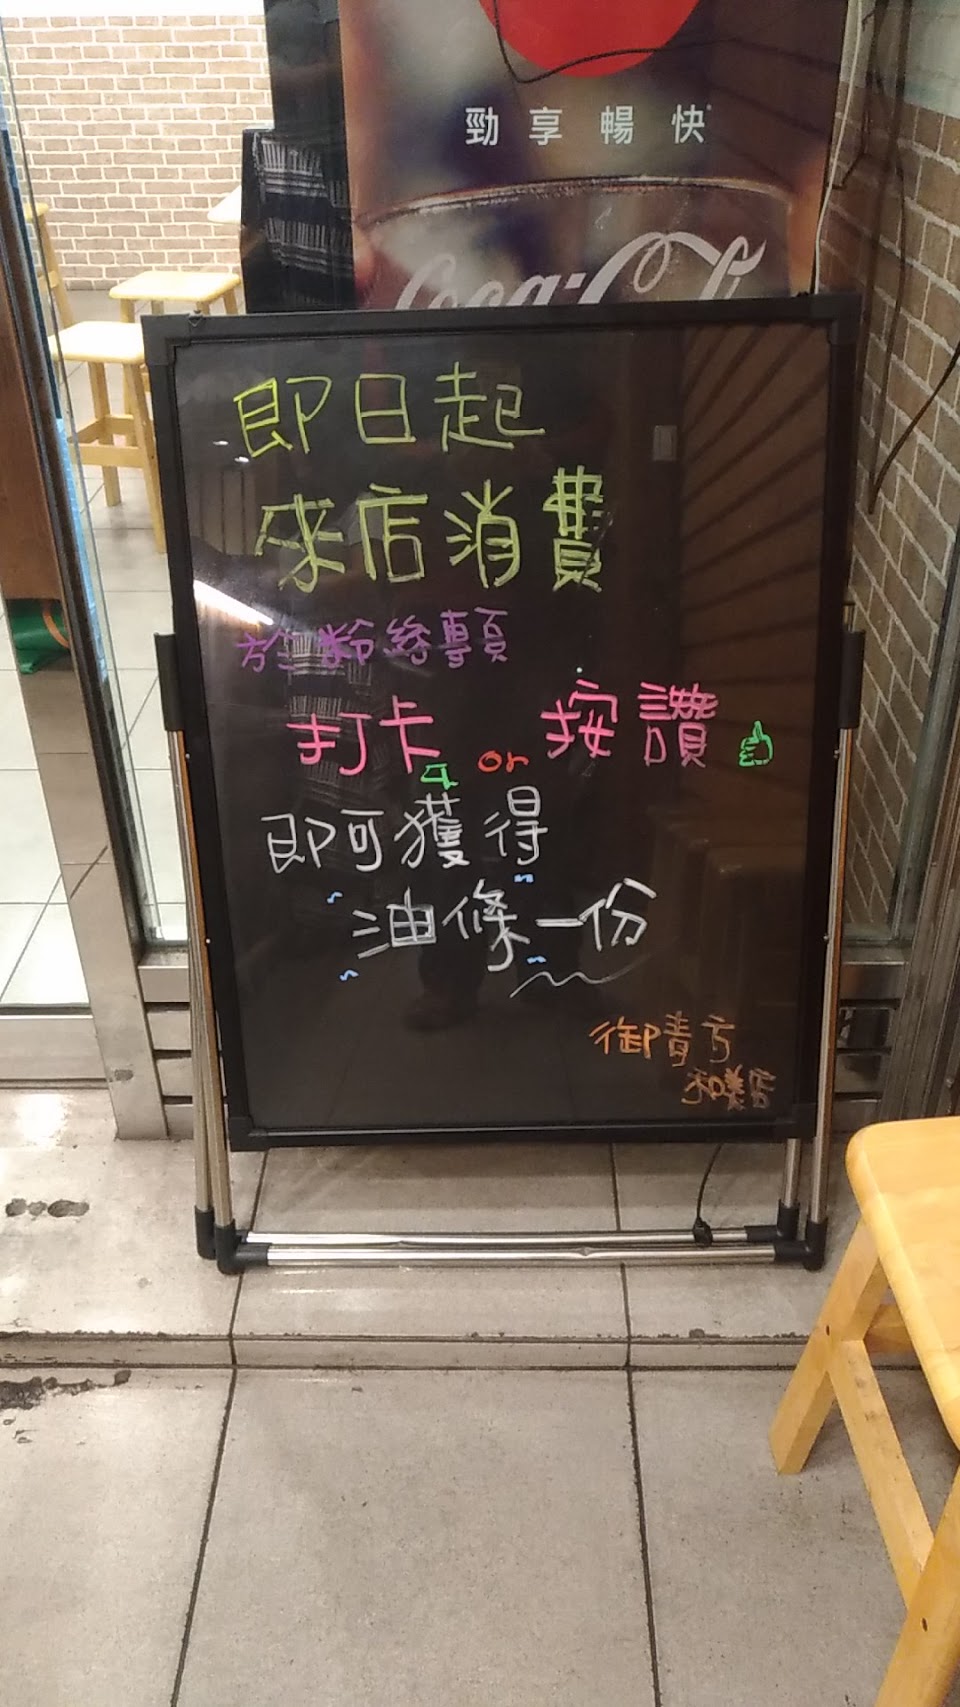 勁享暢快
Coca-Cola
即日起
來店消費
於粉絲專頁
打卡 or 按讚
即可獲得
油條一份
御青方
和美店